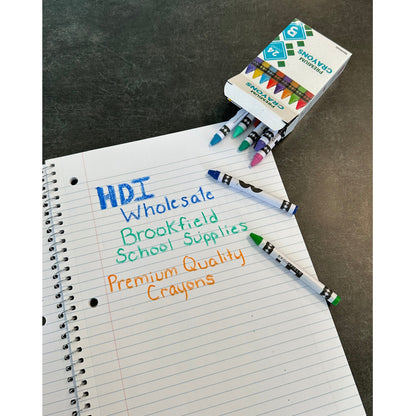 PREMIUM
CRAYONS
24
PREMIUM
CRAYONS
HDI
Wholesale
Brookfield
School Supplies
Premium Quality
Crayons